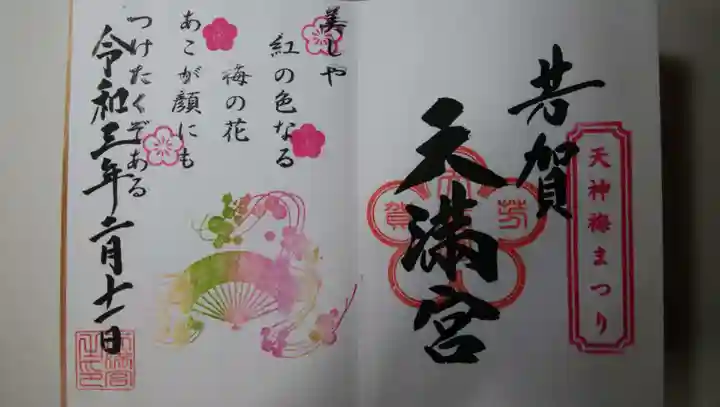 天神梅まつり
芳賀
天満宮
賀 芳
美しや
紅の色なる
梅の花
あこが顔にも
つけたくぞある
令和三年二月十一日